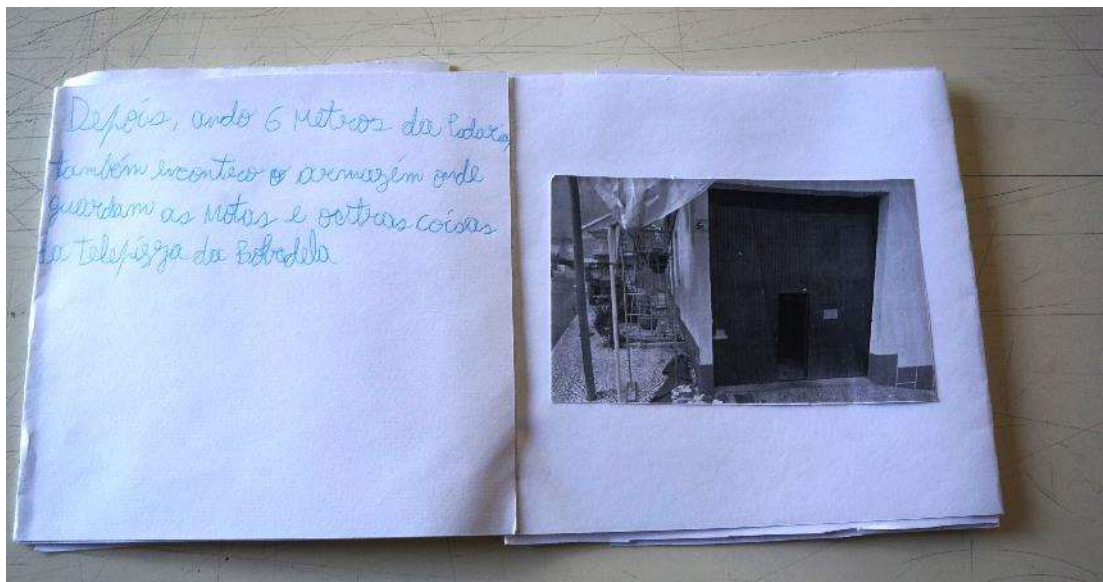 Depois, ando 6 Metros da Padaria,
também encontro o armazém onde
guardam as Motas e outras coisas
da Telepizza da Bobadela